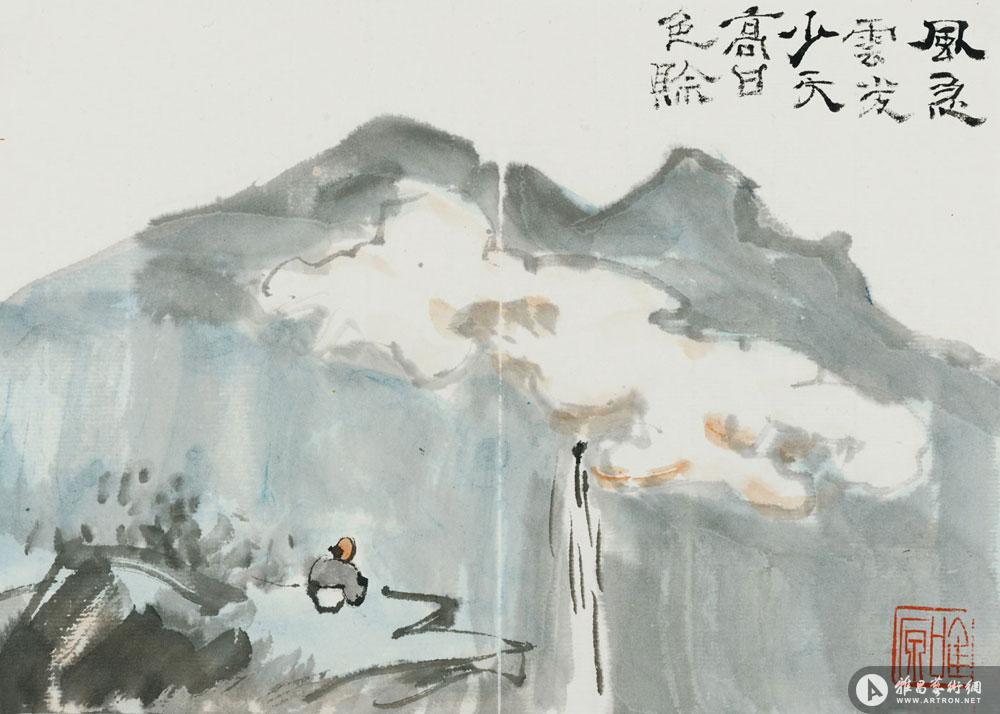 風急
雲
少天
高日
色賒
雅昌藝術網
WWW.ARTRON.NET